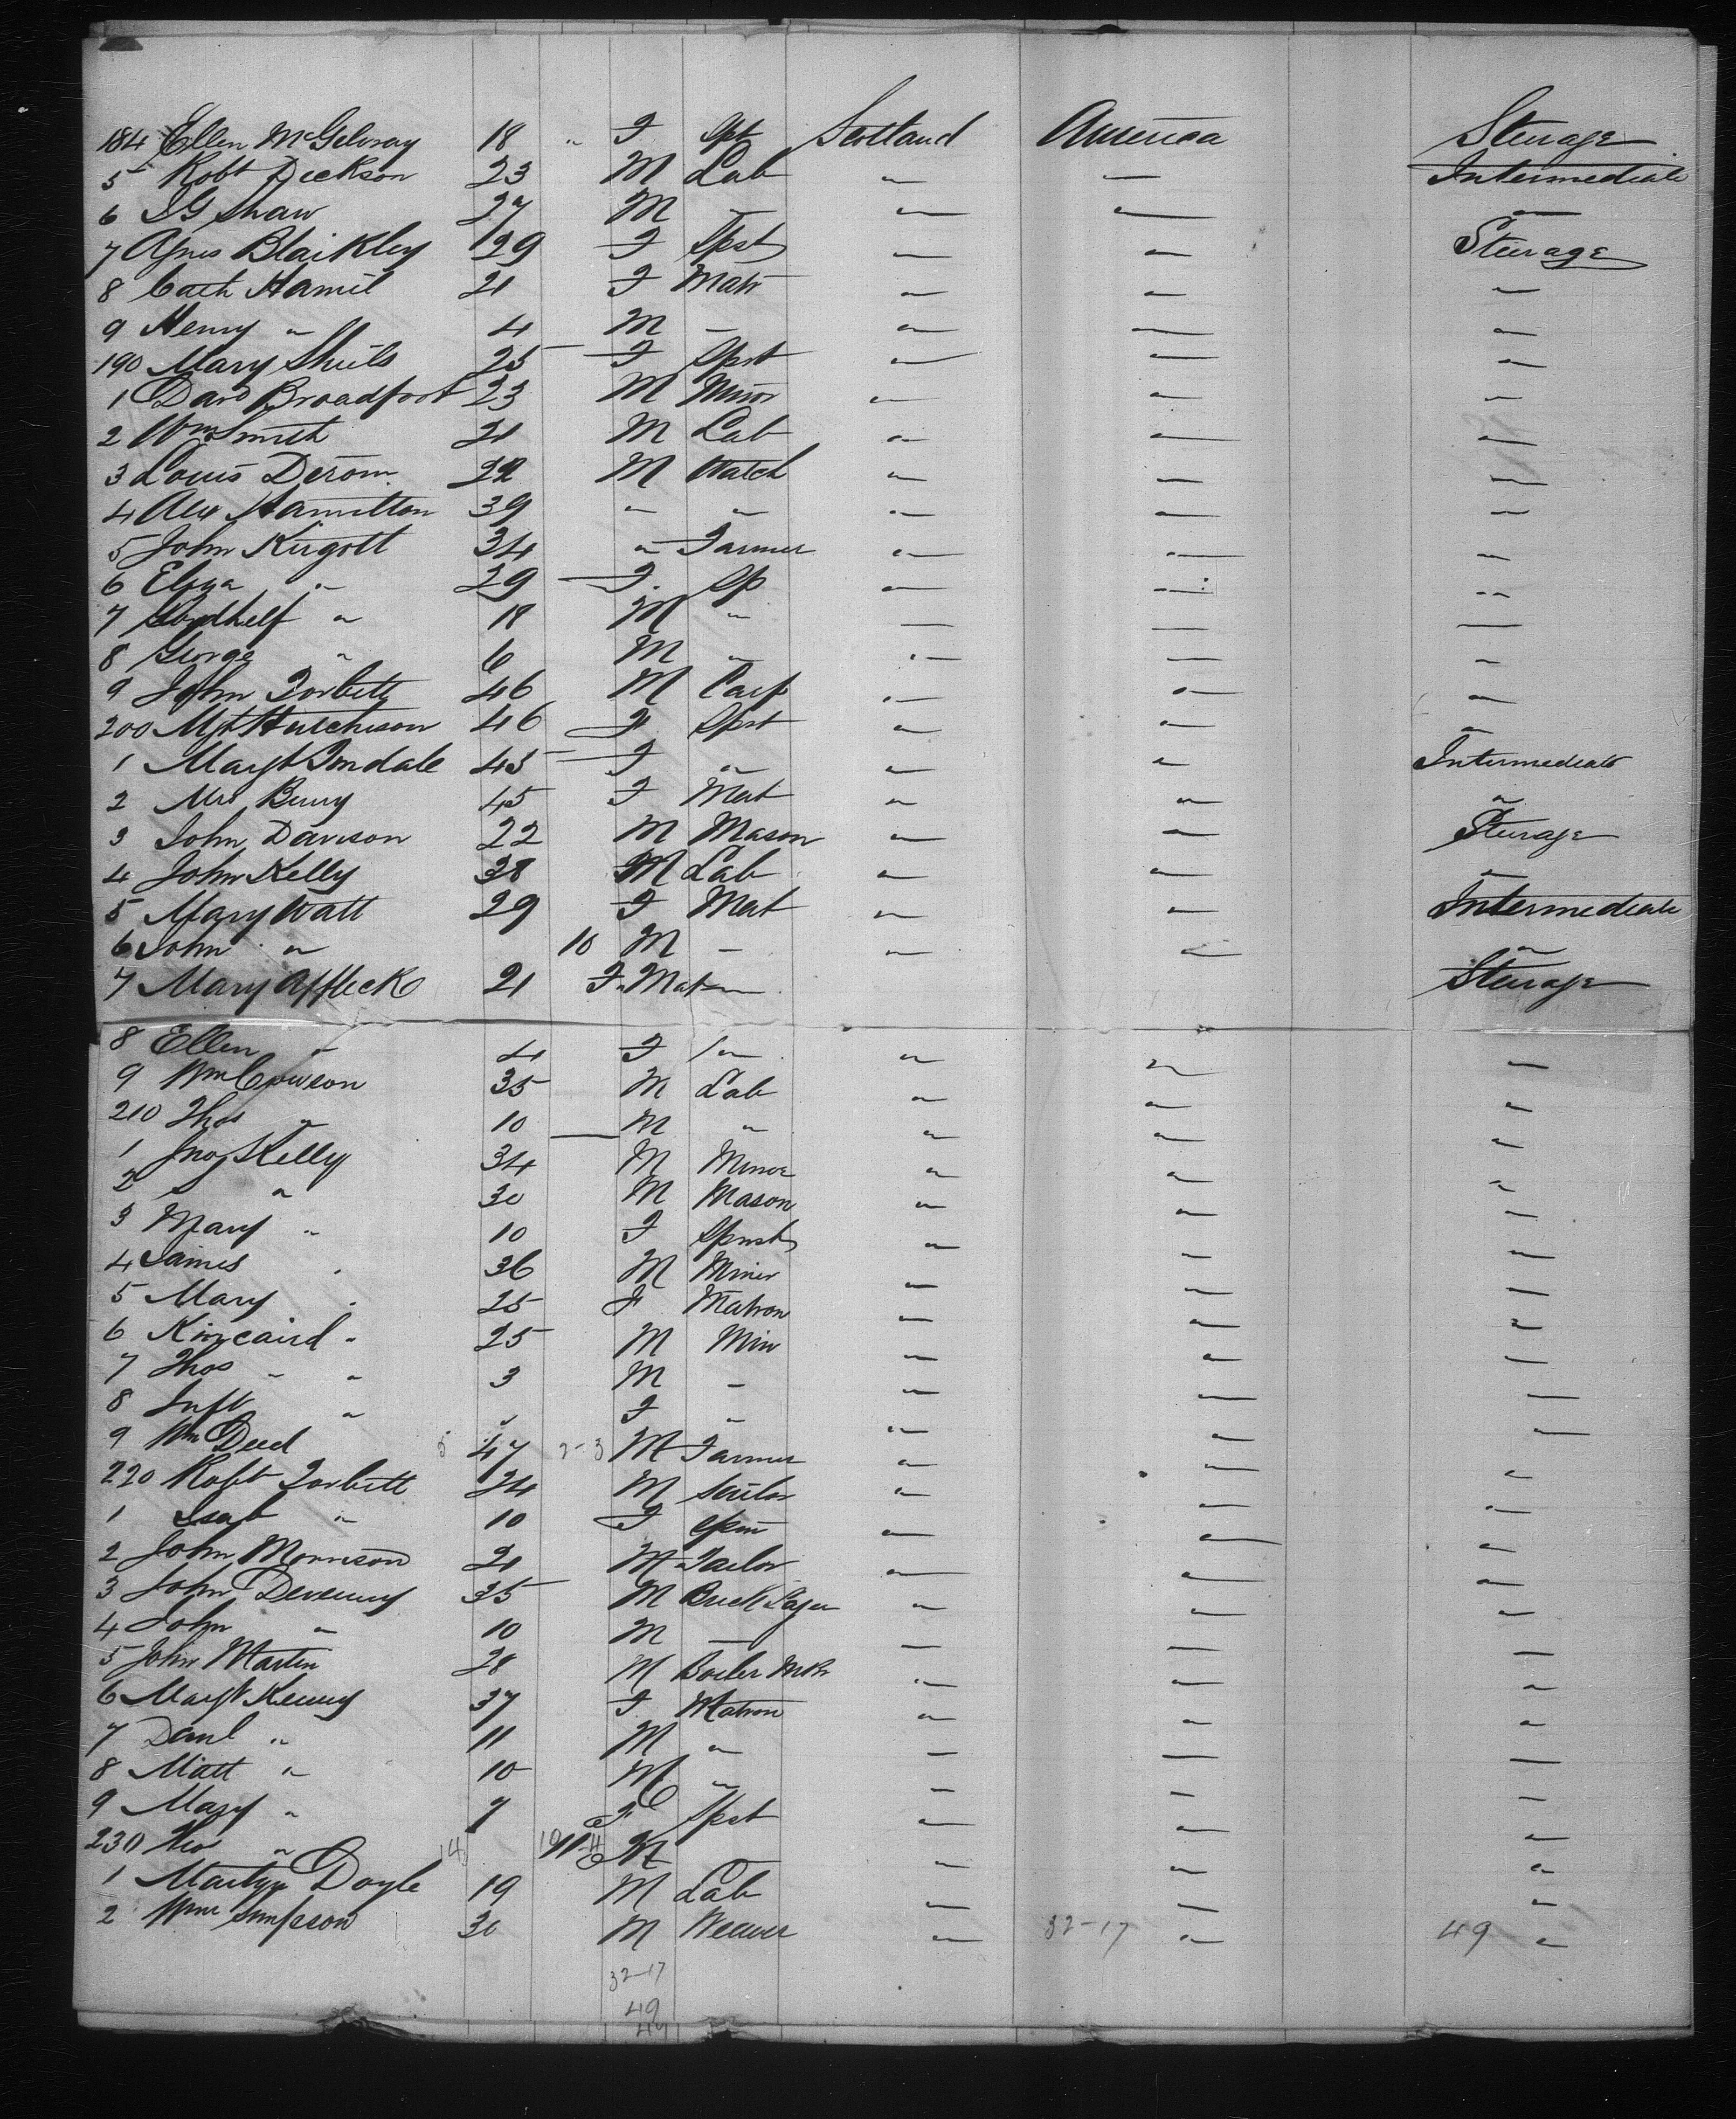 184 Ellen McGelvray 18 " F Spt Scotland America Steerage
5 Robt Dickson 23 M Lab " " Intermediate
6 J G Shaw 27 M " " " "
7 Agnes Blaikley 29 F Spst " " Steerage
8 Cath Hamil 21 F Matr " " "
9 Henry " 4 M - " " "
190 Mary Shiels 25 F Spst " " "
1 David Broadfoot 23 M Minor " " "
2 Wm Smith 21 M Lab " " "
3 Louis 22 M Watch " " "
4 Alex Hamilton 39 " " " " "
5 John 34 " Farmer " " "
6 Eliza " 29 F Sp " " "
7 " 18 M " " " "
8 George " 6 M " " " "
9 John Torbett 46 M Carp " " "
200 Mgt Hutcheson 46 F Spst " " "
1 Margt Tendale 45 F " " " Intermediate
2 Mrs Berry 45 F Mat " " "
3 John Davison 22 M Mason " " Steerage
4 John Kelly 38 M Lab " " "
5 Mary Watt 29 F Mat " " Intermediate
6 John " 10 M - " " "
7 Mary Affleck 21 F Mat Steerage
8 Ellen " 4 F " " " "
9 Wm Cowson 35 M Lab " " "
210 Thos " 10 M " " " "
1 Jno Kelly 34 M Miner " " "
2 " 30 M Mason " " "
3 Mary " 10 F Spnst " " "
4 James " 36 M Miner " " "
5 Mary " 25 F Matron " " "
6 Kincaird " 25 M Min " " "
7 Thos " " 3 M - " " "
8 Inft " " F " " " "
9 Wm Deed 5 47 2-3 M Farmer " " "
220 Robt Torbett 24 M " " "
1 Isab " 10 F Spin " " "
2 John Morrison 21 M Tailor " " "
3 John Devenny 35 M Brick Layer " " "
4 John " 10 M - " " "
5 John Martin 28 M Boiler Mkr " " "
6 Margt Kenny 37 F Matron " " "
7 Danl " 11 M " " " "
8 Matt " 10 M " " " "
9 Mary " 7 F Spst " " "
230 " 14 10 11 M - " " "
1 Doyle 19 M Lab " " "
2 Wm Simpson 30 M Weaver " 32-17 " 49 "
32-17
49
49